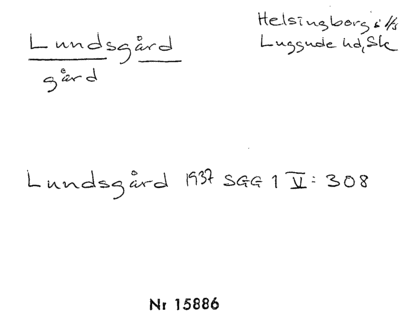 Lundsgård
gård
Helsingborgs l/s
Luggude hd, Sk
Lundsgård 1937 SGG 1 V: 308
Nr 15886